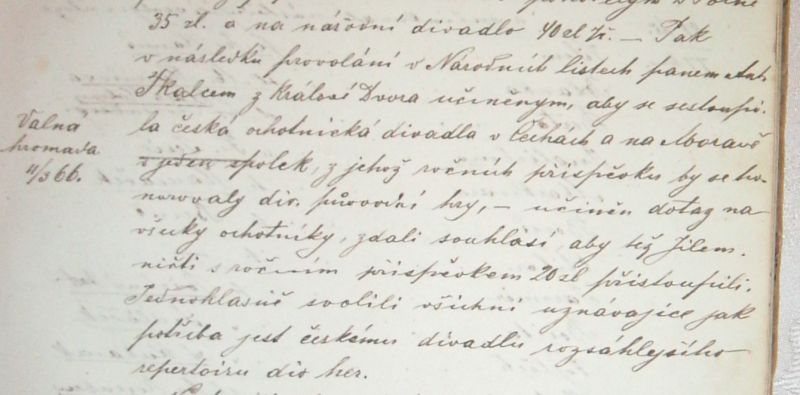 35 zl. a na národní divadlo 40 zl Jř. — Pak
v následku provolání v Národních listech panem Ant.
Tkalcem z Králové Dvora učiněným, aby se sestoupi-
la česká ochotnická divadla v Čechách a na Moravě
Valná
hromada
11/3 66.
v jeden spolek, z jehož ročních příspěvku by se ho-
norovaly div. původní hry, — učiněn dotaz na
všecky ochotníky, zdali souhlasí aby též Jilem-
ničtí s ročním příspěvkem 20 zl přistoupili.
Jednohlasně svolili všichni uznávajíce jak
potřeba jest českému divadlu rozsáhlejšího
repertoiru div her.